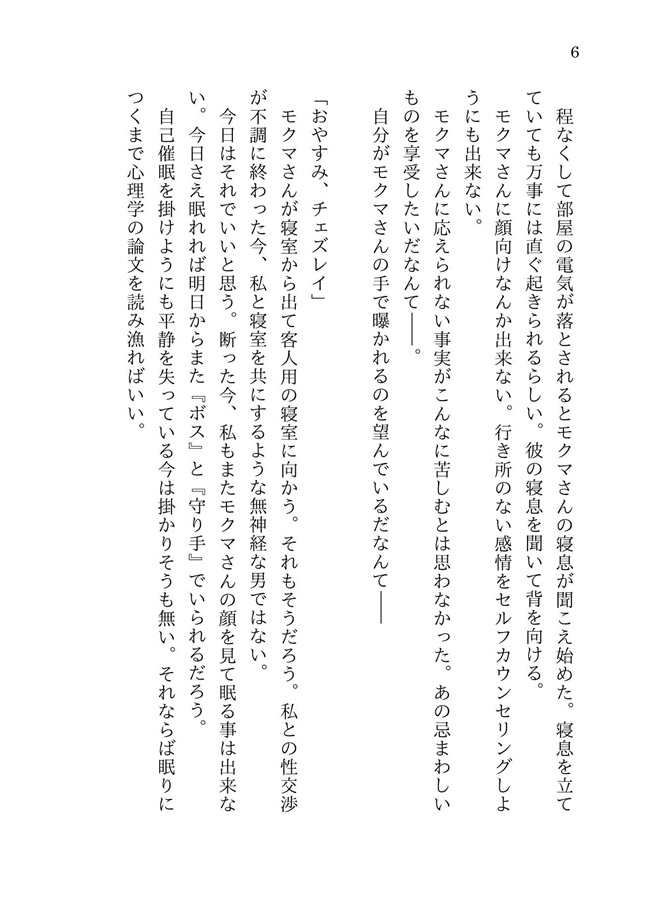 6
程なくして部屋の電気が落とされるとモクマさんの寝息が聞こえ始めた。寝息を立て
ていても万事には直ぐ起きられるらしい。彼の寝息を聞いて背を向ける。
モクマさんに顔向けなんか出来ない。行き所のない感情をセルフカウンセリングしよ
うにも出来ない。
モクマさんに応えられない事実がこんなに苦しむとは思わなかった。あの忌まわしい
ものを享受したいだなんて――。
自分がモクマさんの手で曝かれるのを望んでいるだなんて――
「おやすみ、チェズレイ」
モクマさんが寝室から出て客人用の寝室に向かう。それもそうだろう。私との性交渉
が不調に終わった今、私と寝室を共にするような無神経な男ではない。
今日はそれでいいと思う。断った今、私もまたモクマさんの顔を見て眠る事は出来な
い。今日さえ眠れれば明日からまた『ボス』と『守り手』でいられるだろう。
自己催眠を掛けようにも平静を失っている今は掛かりそうも無い。それならば眠りに
つくまで心理学の論文を読み漁ればいい。